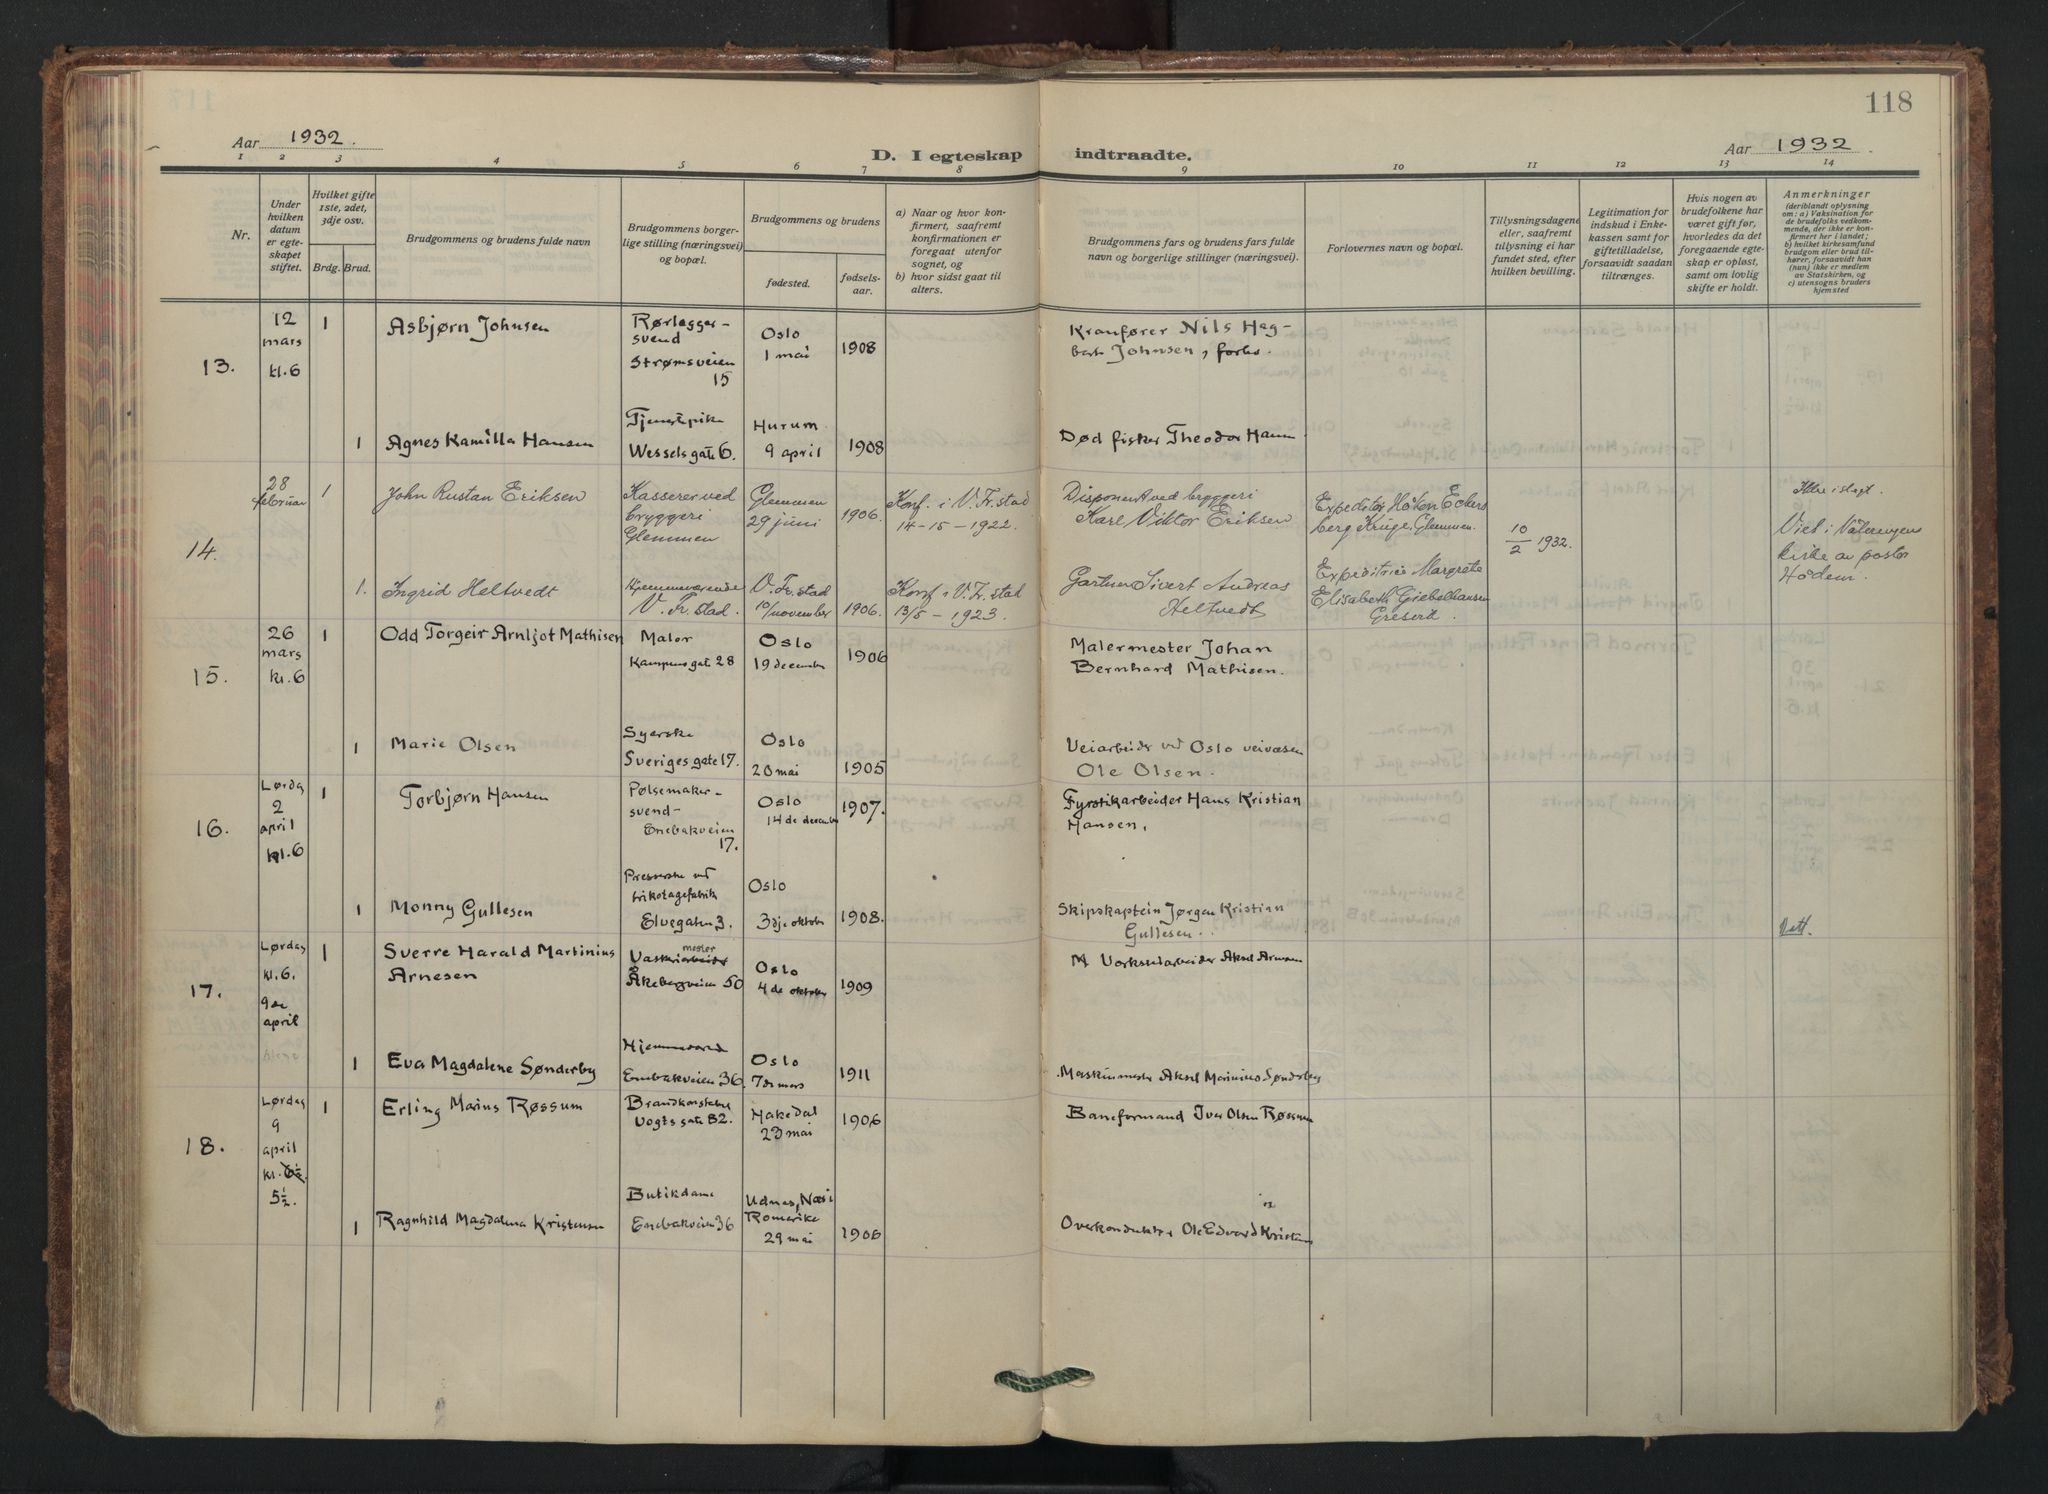 118
Aar 1932.
D. I egteskap indtraadte.
Aar 1932.
1 2 3 4 5 6 7 8 9 10 11 12 13 14
Nr.
Under hvilken datum er egteskapet stiftet.
Hvilket gifte 1ste, 2det, 3dje osv.
Brdg. Brud.
Brudgommens og brudens fulde navn
Brudgommens borgerlige stilling (næringsvei) og bopæl.
Brudgommens og brudens
fødested.
fødselsaar.
a) Naar og hvor konfirmert, saafremt konfirmationen er foregaat utenfor sognet, og
b) hvor sidst gaat til alters.
Brudgommens fars og brudens fars fulde navn og borgerlige stillinger (næringsvei).
Forlovernes navn og bopæl.
Tillysningsdagene eller, saafremt tillysning ei har fundet sted, efter hvilken bevilling.
Legitimation for indskud i Enkekassen samt for giftetilladelse, forsaavidt saadan tiltrænges.
Hvis nogen av brudefolkene har været gift før, hvorledes da det foregaaende egteskap er opløst, samt om lovlig skifte er holdt.
Anmerkninger
(deriblandt oplysning om: a) Vaksination for de brudefolks vedkommende, der ikke er konfirmert her i landet; b) hvilket kirkesamfund brudgom eller brud tilhører, forsaavidt han (hun) ikke er medlem av Statskirken, og c) utensogns bruders hjemsted
13.
12 mars kl.6
1
Asbjørn Johnsen
Rørlegger-
svend
Strømsveien
15
Oslo
1 mai
1908
Kranfører Nils Hag-
bart Johnsen, forhv.
1
Agnes Kamilla Hansen
Tjenestepike
Wessels gate 6.
Hurum
9 april
1908
Død fisker Theodor Hansen
14.
28 februar
1
John Rustan Eriksen
Kasserer ved
bryggeri
Glemmen
Glemmen
29 juni
1906.
Konf. i V. Fr.stad
14-15-1922.
Disponent ved bryggeri
Karl Viktor Eriksen
Expeditør
berg Kruge, Glemmen.
10/2 1932.
Ikke i slegt.
Viet i Vålerengens
kirke av pastor
Hodem.
1.
Ingrid Heltvedt
Hjemmeværende
V. Fr.stad.
V. Fr.stad
10/november
1906.
Konf. i V. Fr.stad
13/5-1923.
Gartner Sivert Andreas
Heltvedt
Expeditrice Margrete
Elisabeth Giebelhausen
15.
26 mars kl.6
1
Odd Torgeir Arnljot Mathisen
Maler
Kampens gate 28
Oslo
19 december
1906
Malermester Johan
Bernhard Mathisen.
1
Marie Olsen
Syerske
Sveriges gate 17.
Oslo
20 mai
1905
Veiarbeider ved Oslo veivæsen
Ole Olsen.
16.
Lørdag 2 april kl.6
1
Torbjørn Hansen
Pølsemaker-
svend-
Enebakveien
17.
Oslo
14 de december
1907.
Fyrstikarbeider Hans Kristian
Hansen.
1
Monny Gullesen
Presserske ved
trikotagefabrik
Elvegaten 3.
Oslo
3dje oktober
1908.
Skipskaptein Jørgen Kristian
Gullesen.
17.
Lørdag kl.6. 9de april
1
Sverre Harald Martinius
Arnesen
Vaskeriarbeider
mester
Åkebergveien 50
Oslo
4 de oktober
1909
Verkstedarbeider Aksel Arnesen
1
Eva Magdalene Sønderby
Hjemmeværende
Enebakveien 36.
Oslo
7 de mars
1911
Maskinmester Aksel Marinius Sønderby
18.
Lørdag 9 april kl. 6½. 5½.
1
Erling Marius Røssum
Brandkonstabel
Vogts gate 82.
Hakedal
23 mai
1906
Baneformand Iver Olsen Røssum
1
Ragnhild Magdalena Kristensen
Butikdame
Enebakveien 36
Udnes, Næs i
Romerike
29 mai
1906
Overkonduktør Ole Edvard Kristensen